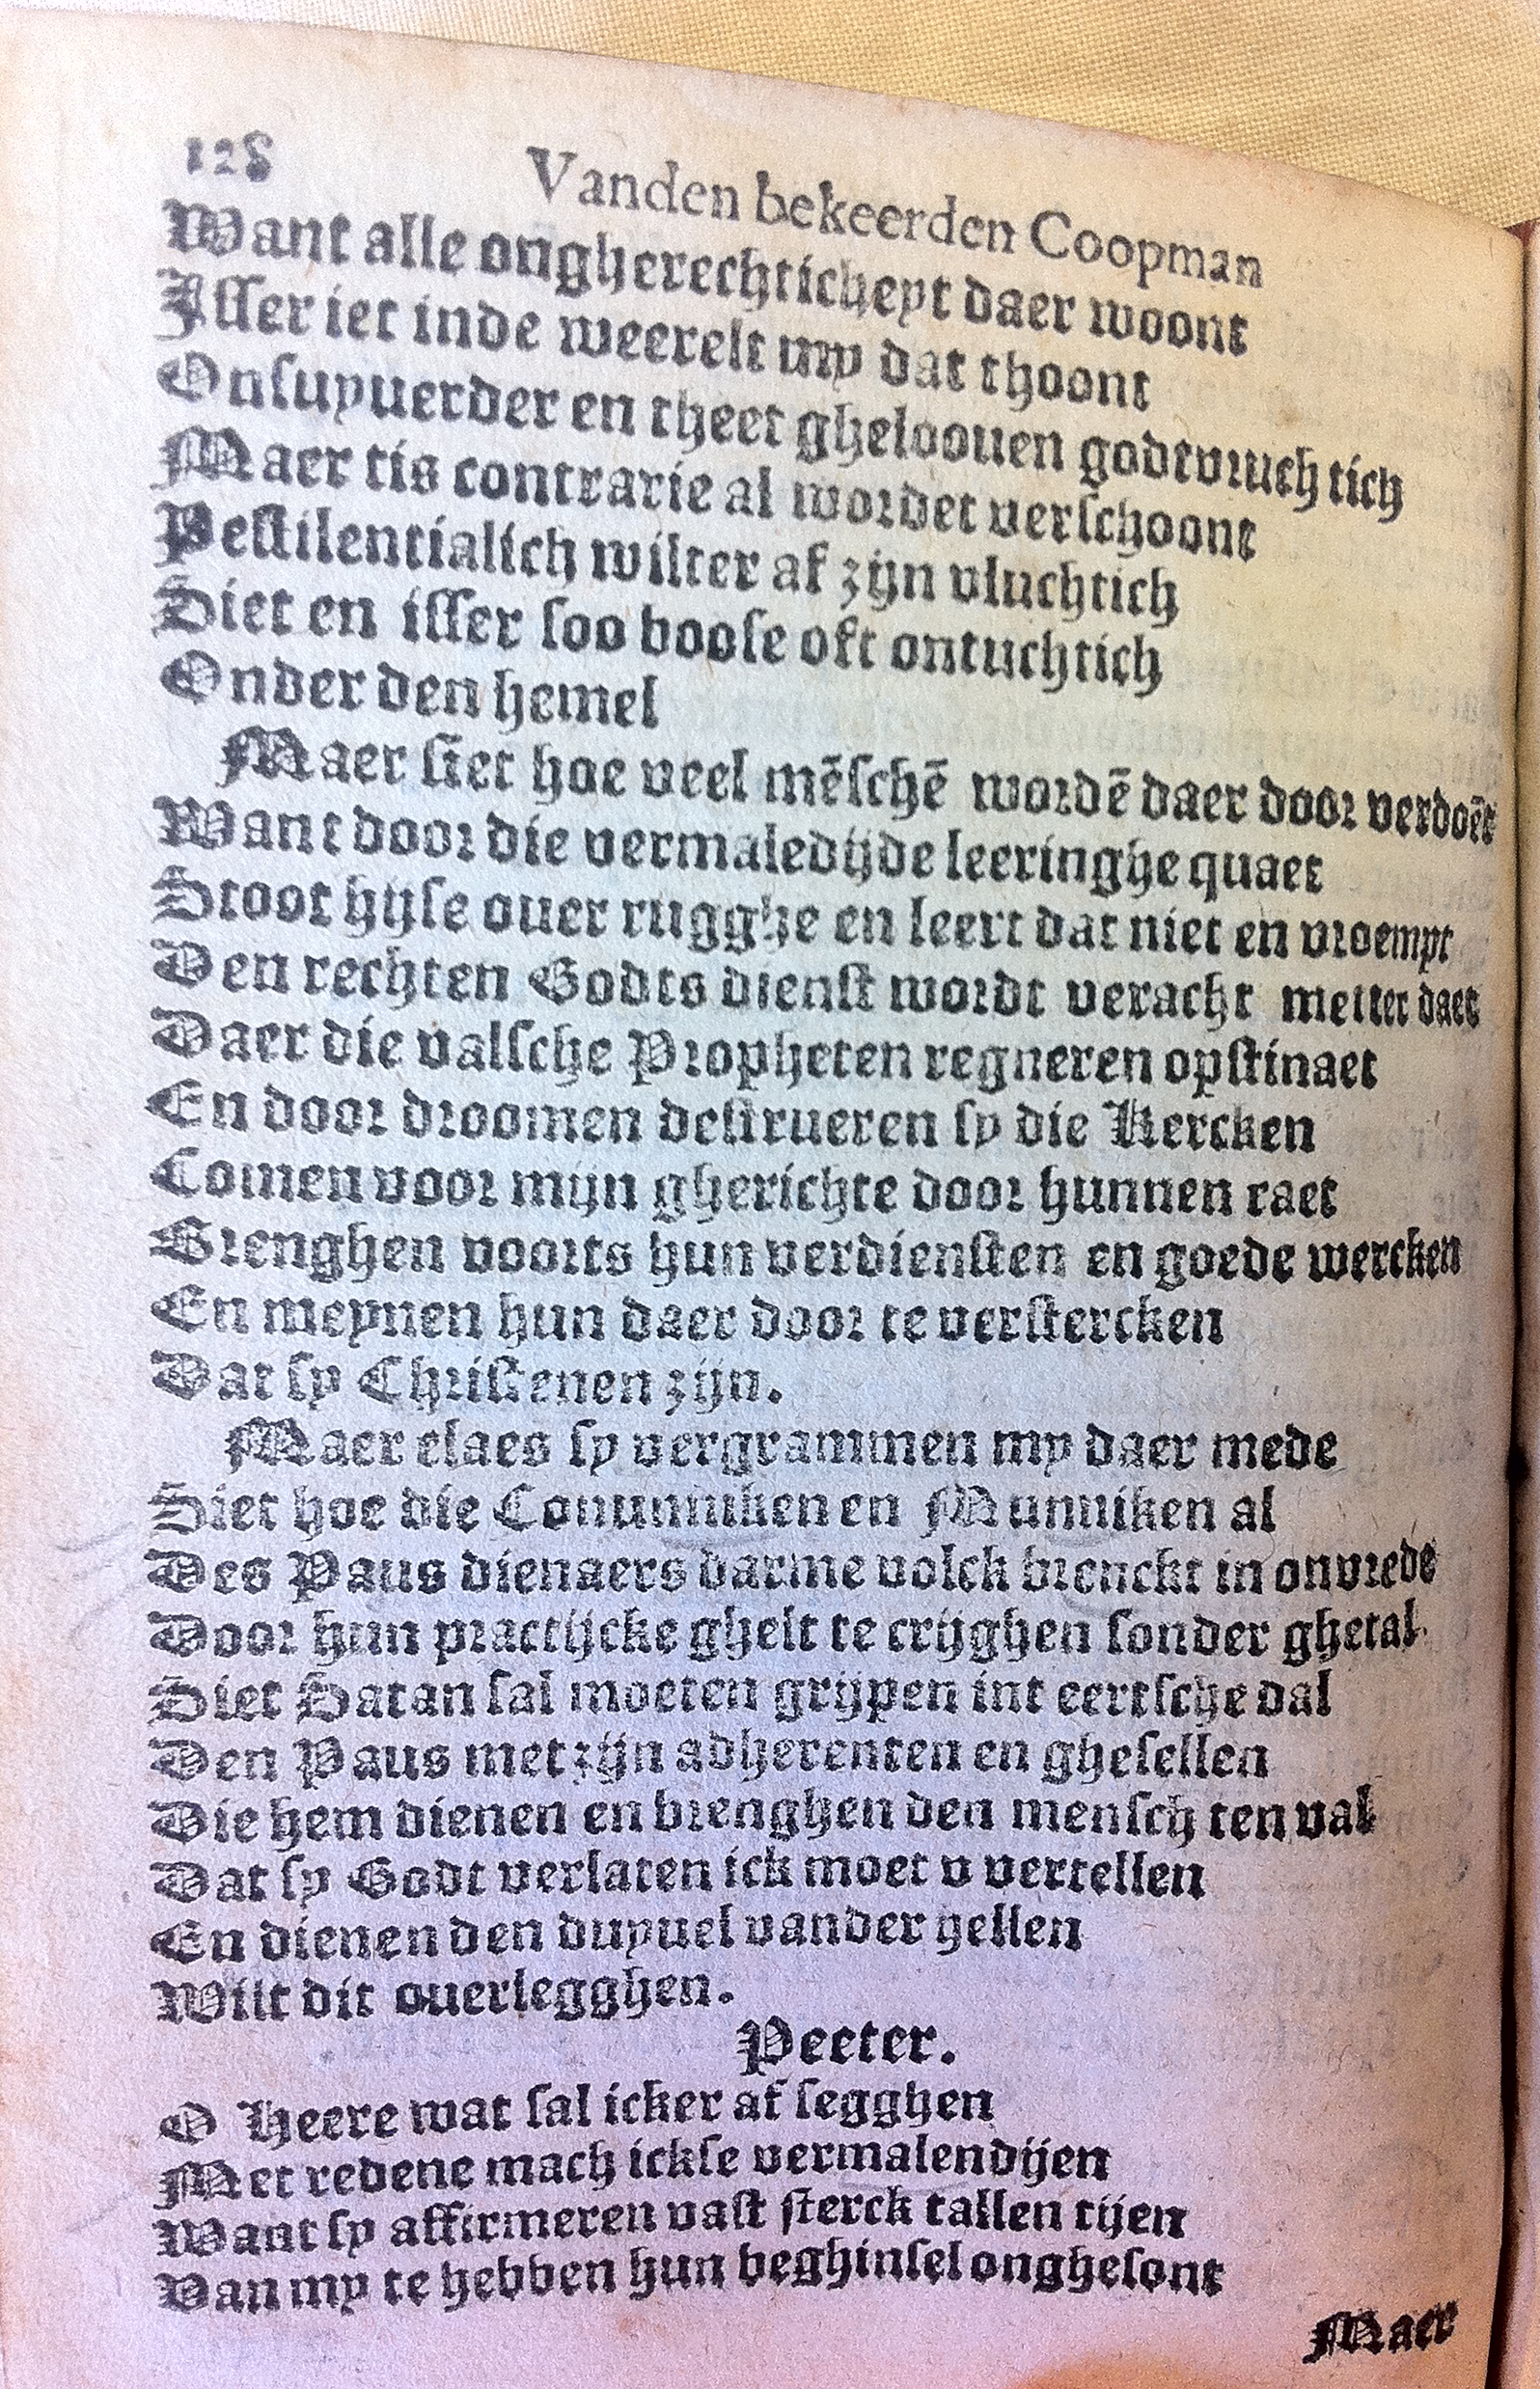 128
Vanden bekeerden Coopman
Want alle ongherechticheyt daer woont
Isser iet inde weerelt my dat thoont
Onsuyuerder en theet gheloouen godtvruchtich
Maer tis contrarie al wordet verschoont
Pestilentialich wilter af zijn vluchtich
Siet en isser soo boose oft ontuchtich
Onder den hemel
Maer siet hoe veel mēschē wordē daer door verdoēt
Want door die vermaledijde leeringhe quaet
Stoot hijse ouer rugghe en leert dat niet en vroempt
Den rechten Godts dienst wordt veracht metter daet
Daer die valsche Propheten regneren opstinaet
En door droomen destrueren sy die Kercken
Comen voor mijn gherichte door hunnen raet
Brenghen voorts hun verdiensten en goede wercken
En meynen hun daer door te verstercken
Dat sy Christenen zijn.
Maer elaes sy vergrammen my daer mede
Siet hoe die Conunniken en Munniken al
Des Paus dienaers darme volck brenckt in onvrede
Door hun practijcke ghelt te crijghen sonder ghetal.
Siet Satan sal moeten grijpen int eertsche dal
Den Paus met zijn adherenten en ghesellen
Die hem dienen en brenghen den mensch ten val
Dat sy Godt verlaten ick moet v vertellen
En dienen den duyuel vander hellen
Wilt dit ouerlegghen.
Peeter.
O Heere wat sal icker af segghen
Met redene mach ickse vermalendijen
Want sy affirmeren vast sterck tallen tijen
Van my te hebben hun beghinsel onghesont
Maer